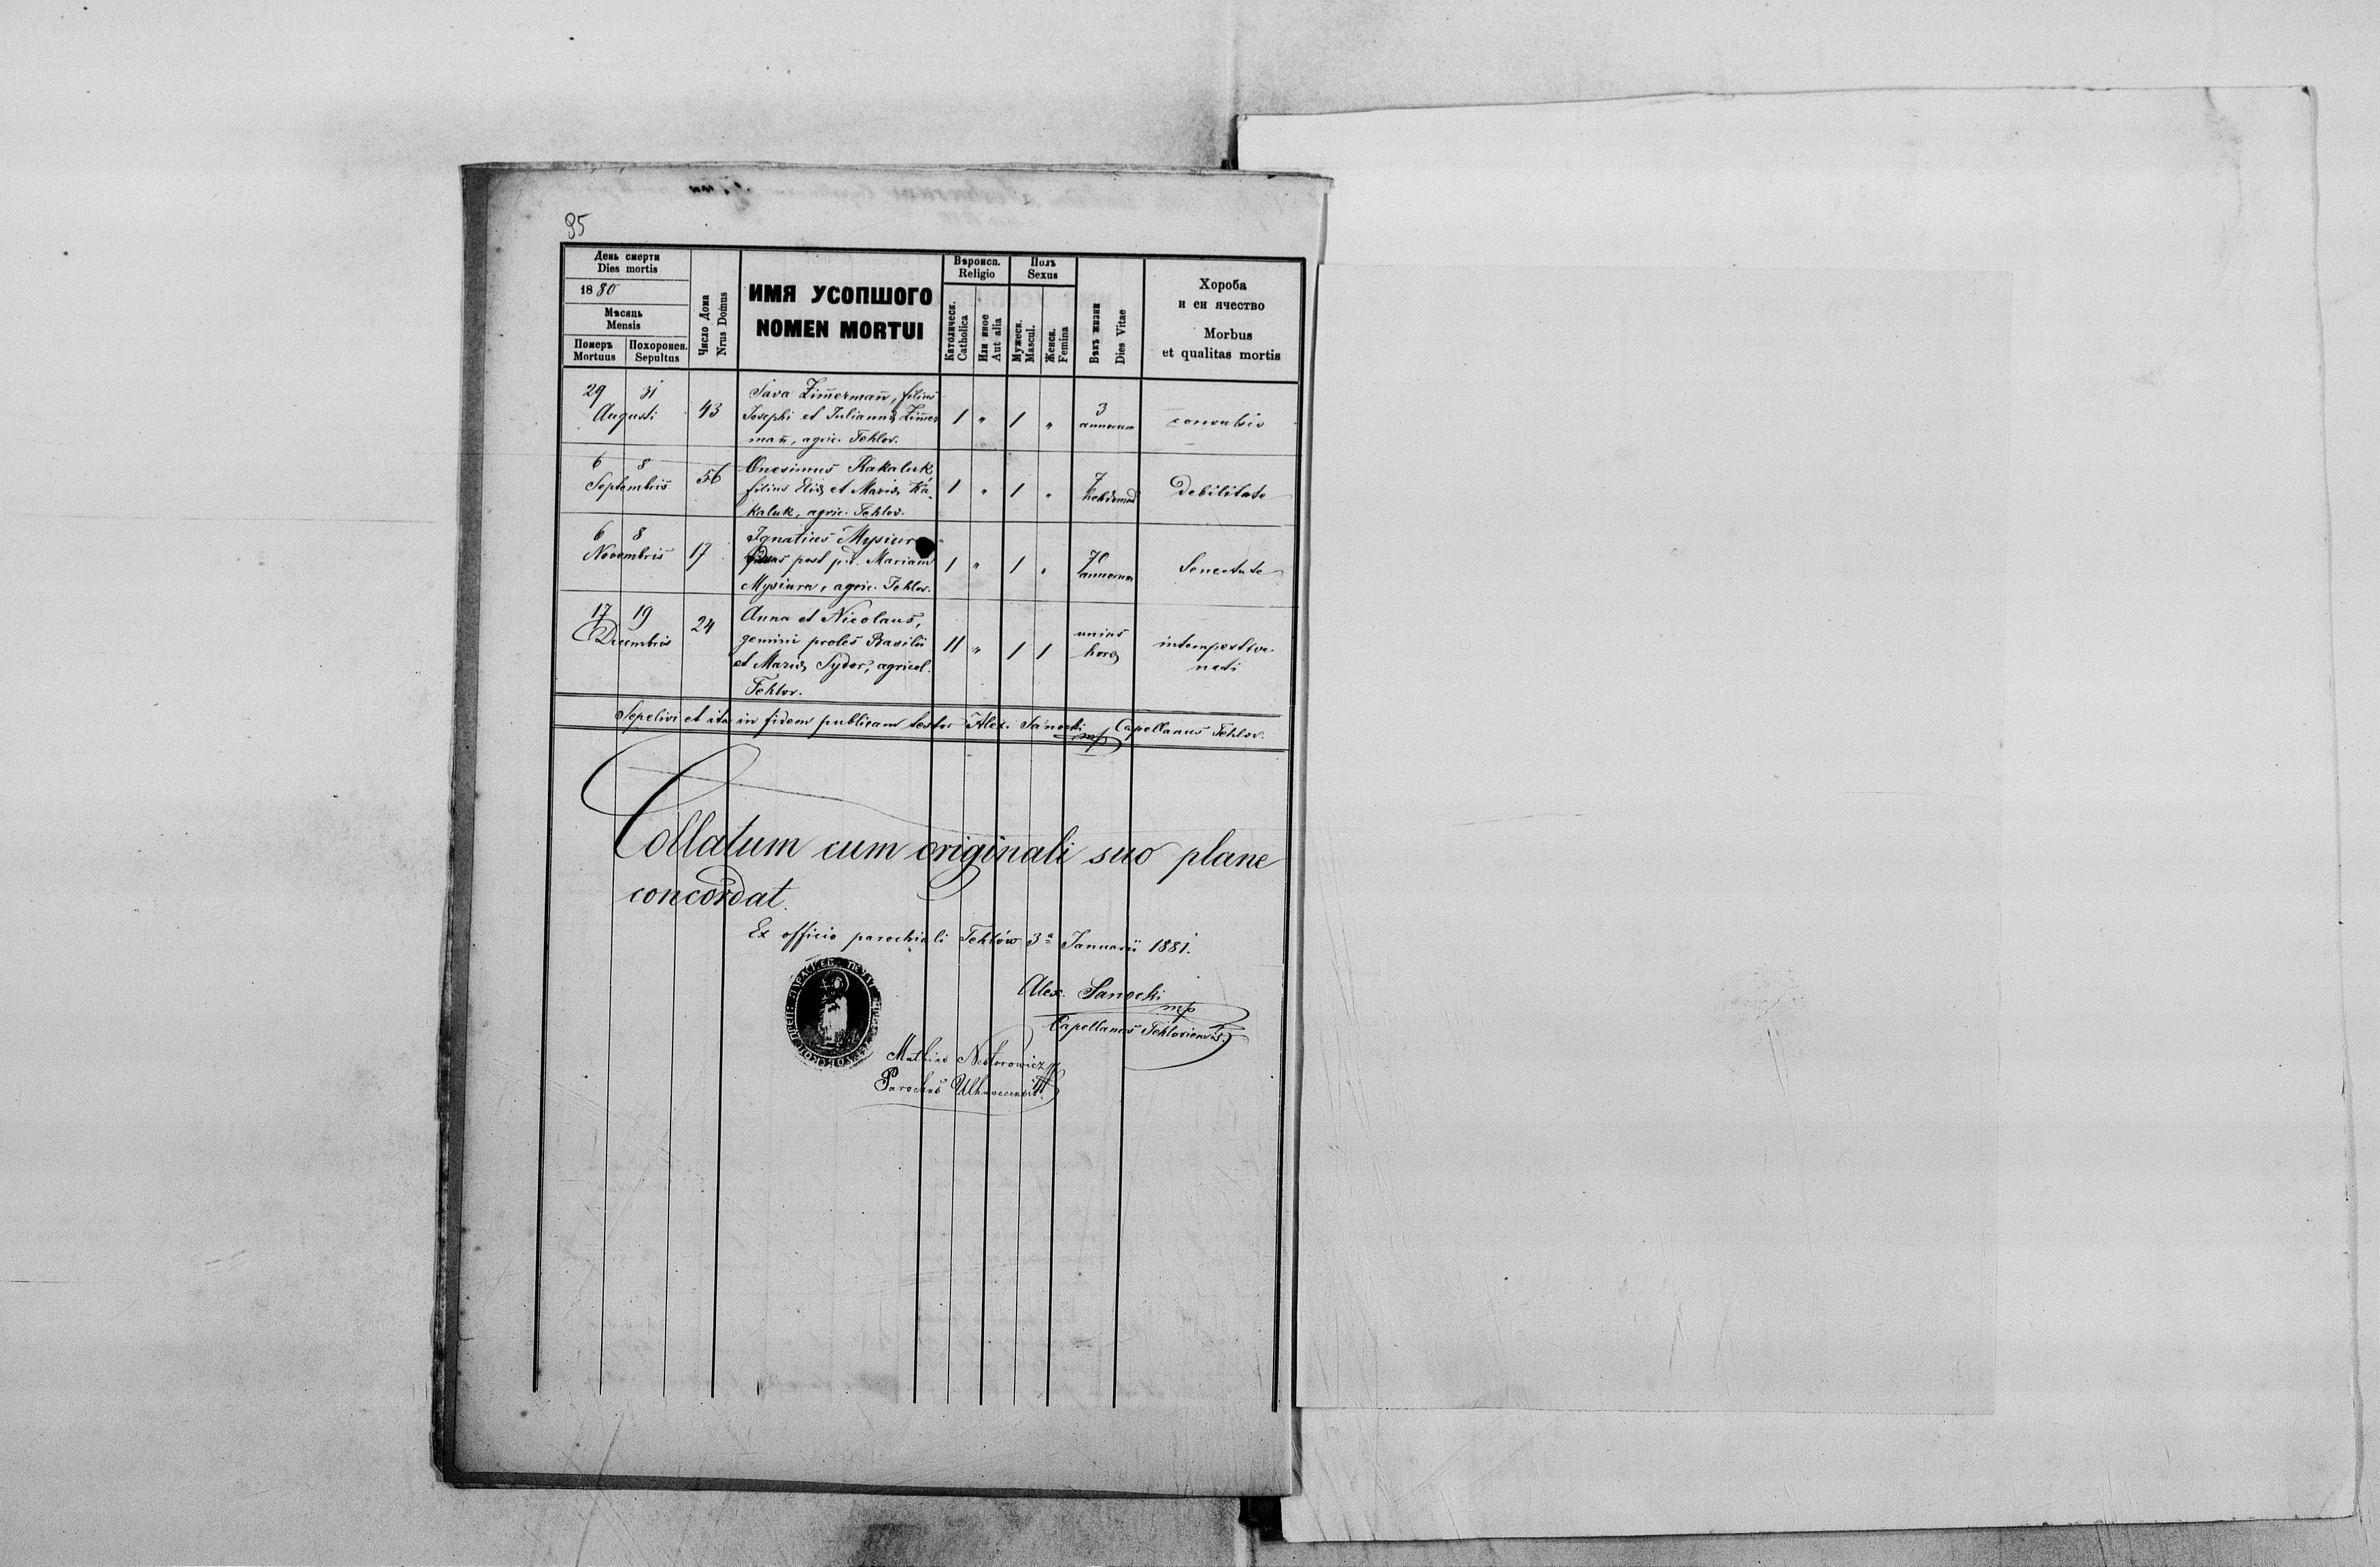 95
День смерти
Dies mortis
1880
Мѣсяць
Mensis
Померъ
Mortuus
Похоронен.
Sepultus
Число Дома
Nrus Domus
ИМЯ УСОПШОГО
NOMEN MORTUI
Вѣроисп.
Religio
Католическ.
Catholica
Или иное
Aut alia
Полъ
Sexus
Мужеск.
Mascul.
Женск.
Femina
Вѣкъ жизни
Dies Vitae
Хороба
и еи ячество
Morbus
et qualitas mortis
29 31 Augusti 43 Sava Zim̄erman̄, filius
Josephi et Juliannæ Zim̄er
man̄, agric. Tehlov. 1 " 1 " 3 annorum convulsio
6 8 Septembris 56 Onesimus Kakaluk
filius Eliæ et Mariæ Ka-
kaluk, agric. Tehlov. 1 " 1 " 7 hebdomad debilitate
6 8 Novembris 17 Ignatius Mysiura
post p.d. Mariam
Mysiura, agric. Tehlov. 1 " 1 " 70 annorum Senectute
17 19 Decembris 24 Anna et Nicolaus,
gemini proles Basilii
et Mariæ Sydor, agricol.
Tehlov. 11 " 1 1 unius horæ intempestive nati
Sepelivi et ita in fidem publicam testor Alex. Sanocki mp Capellanus Tehlov.
Collatum cum originali suo plane
concordat.
Ex officio parochiali Tehlów 3ª Januarii 1881.
Alex. Sanocki
mp
Capellanus Tehloviensis.
Mathias Nestorowicz
Parochus Uhnovecensis.